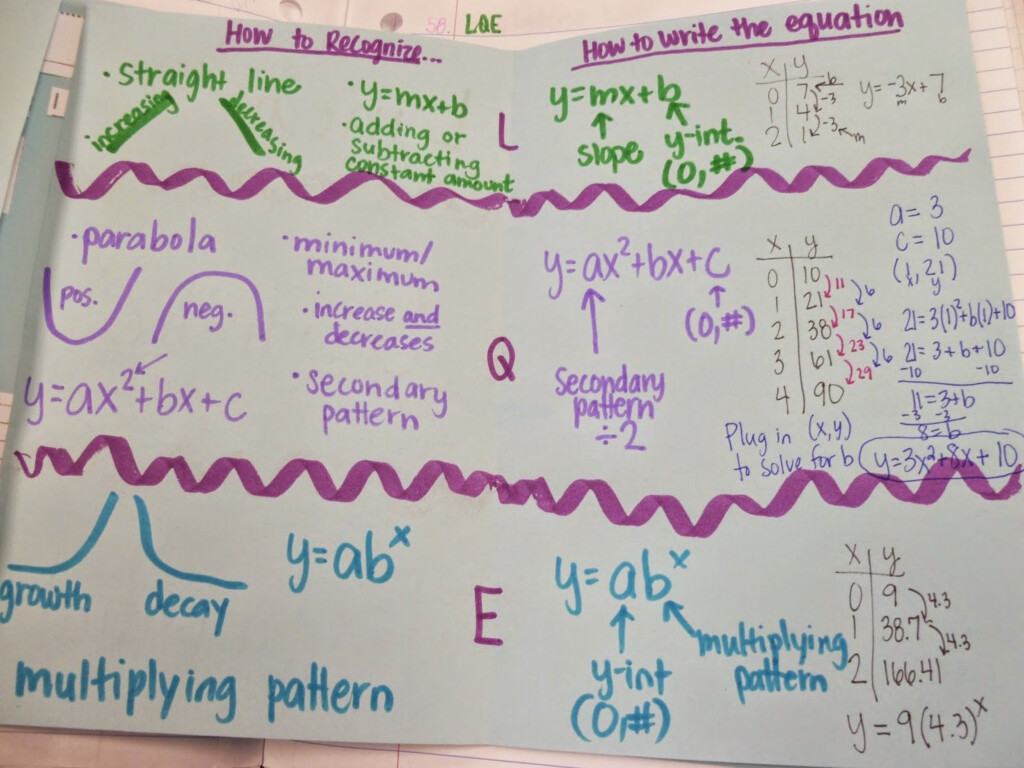 58. LQE
How to Recognize...
• straight line
increasing
decreasing
• y=mx+b
• adding or
subtracting
constant amount
L
How to write the equation
y=mx+b
slope
y-int.
(0,#)
x | y
0 | 7 ←b
1 | 4 -3
2 | 1 -3 ←m
y=-3x+7
m b
• parabola
pos.
neg.
y=ax²+bx+c
• minimum/
maximum
• increase and
decreases
• secondary
pattern
Q
y=ax²+bx+c
(0,#)
Secondary
pattern
÷2
x | y
0 | 10
1 | 21
2 | 38
3 | 61
4 | 90
11
17
23
29
6
6
6
a=3
c=10
(1,21)
x y
21=3(1)²+b(1)+10
21=3+b+10
-10 -10
11=3+b
-3 -3
8=b
Plug in (x,y)
to solve for b
y=3x²+8x+10
growth
decay
y=abˣ
multiplying pattern
E
y=abˣ
y-int
(0,#)
multiplying
pattern
x | y
0 | 9
1 | 38.7
2 | 166.41
4.3
4.3
y=9(4.3)ˣ